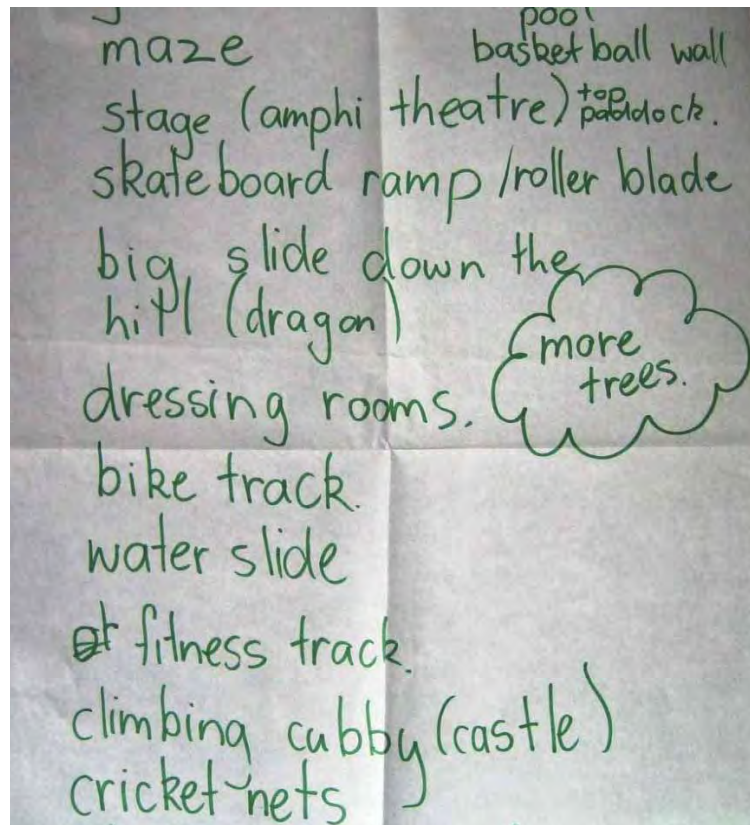 pool
maze basketball wall
stage (amphi theatre) top paddock.
skateboard ramp/roller blade
big slide down the
hill (dragon)
more
trees.
dressing rooms.
bike track.
water slide
fitness track.
climbing cubby (castle)
cricket nets